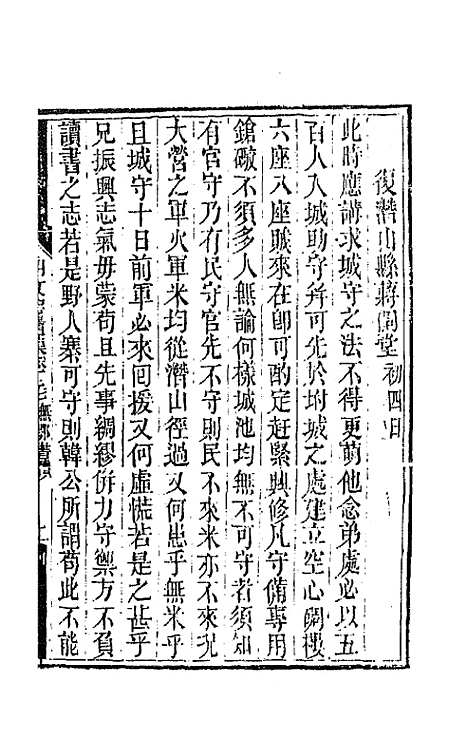 復潛山縣蔣嗣堂初四日
此時應講求城守之法不得更萌他念弟處必以五
百人入城助守并可先於坿城之處建立空心礮樓
六座八座賊來在卽可酌定趕緊興修凡守備專用
鎗礮不須多人無論何樣城池均無不可守者須知
有官守乃有民守官先不守則民不來米亦不來况
大營之軍火軍米均從潛山徑過又何患乎無米乎
且城守十日前軍必來囘援又何虛慌若是之甚乎
兄振興志氣毋蒙苟且先事綢繆併力守禦方不負
讀書之志若是野人寨可守則韓公所謂苟此不能